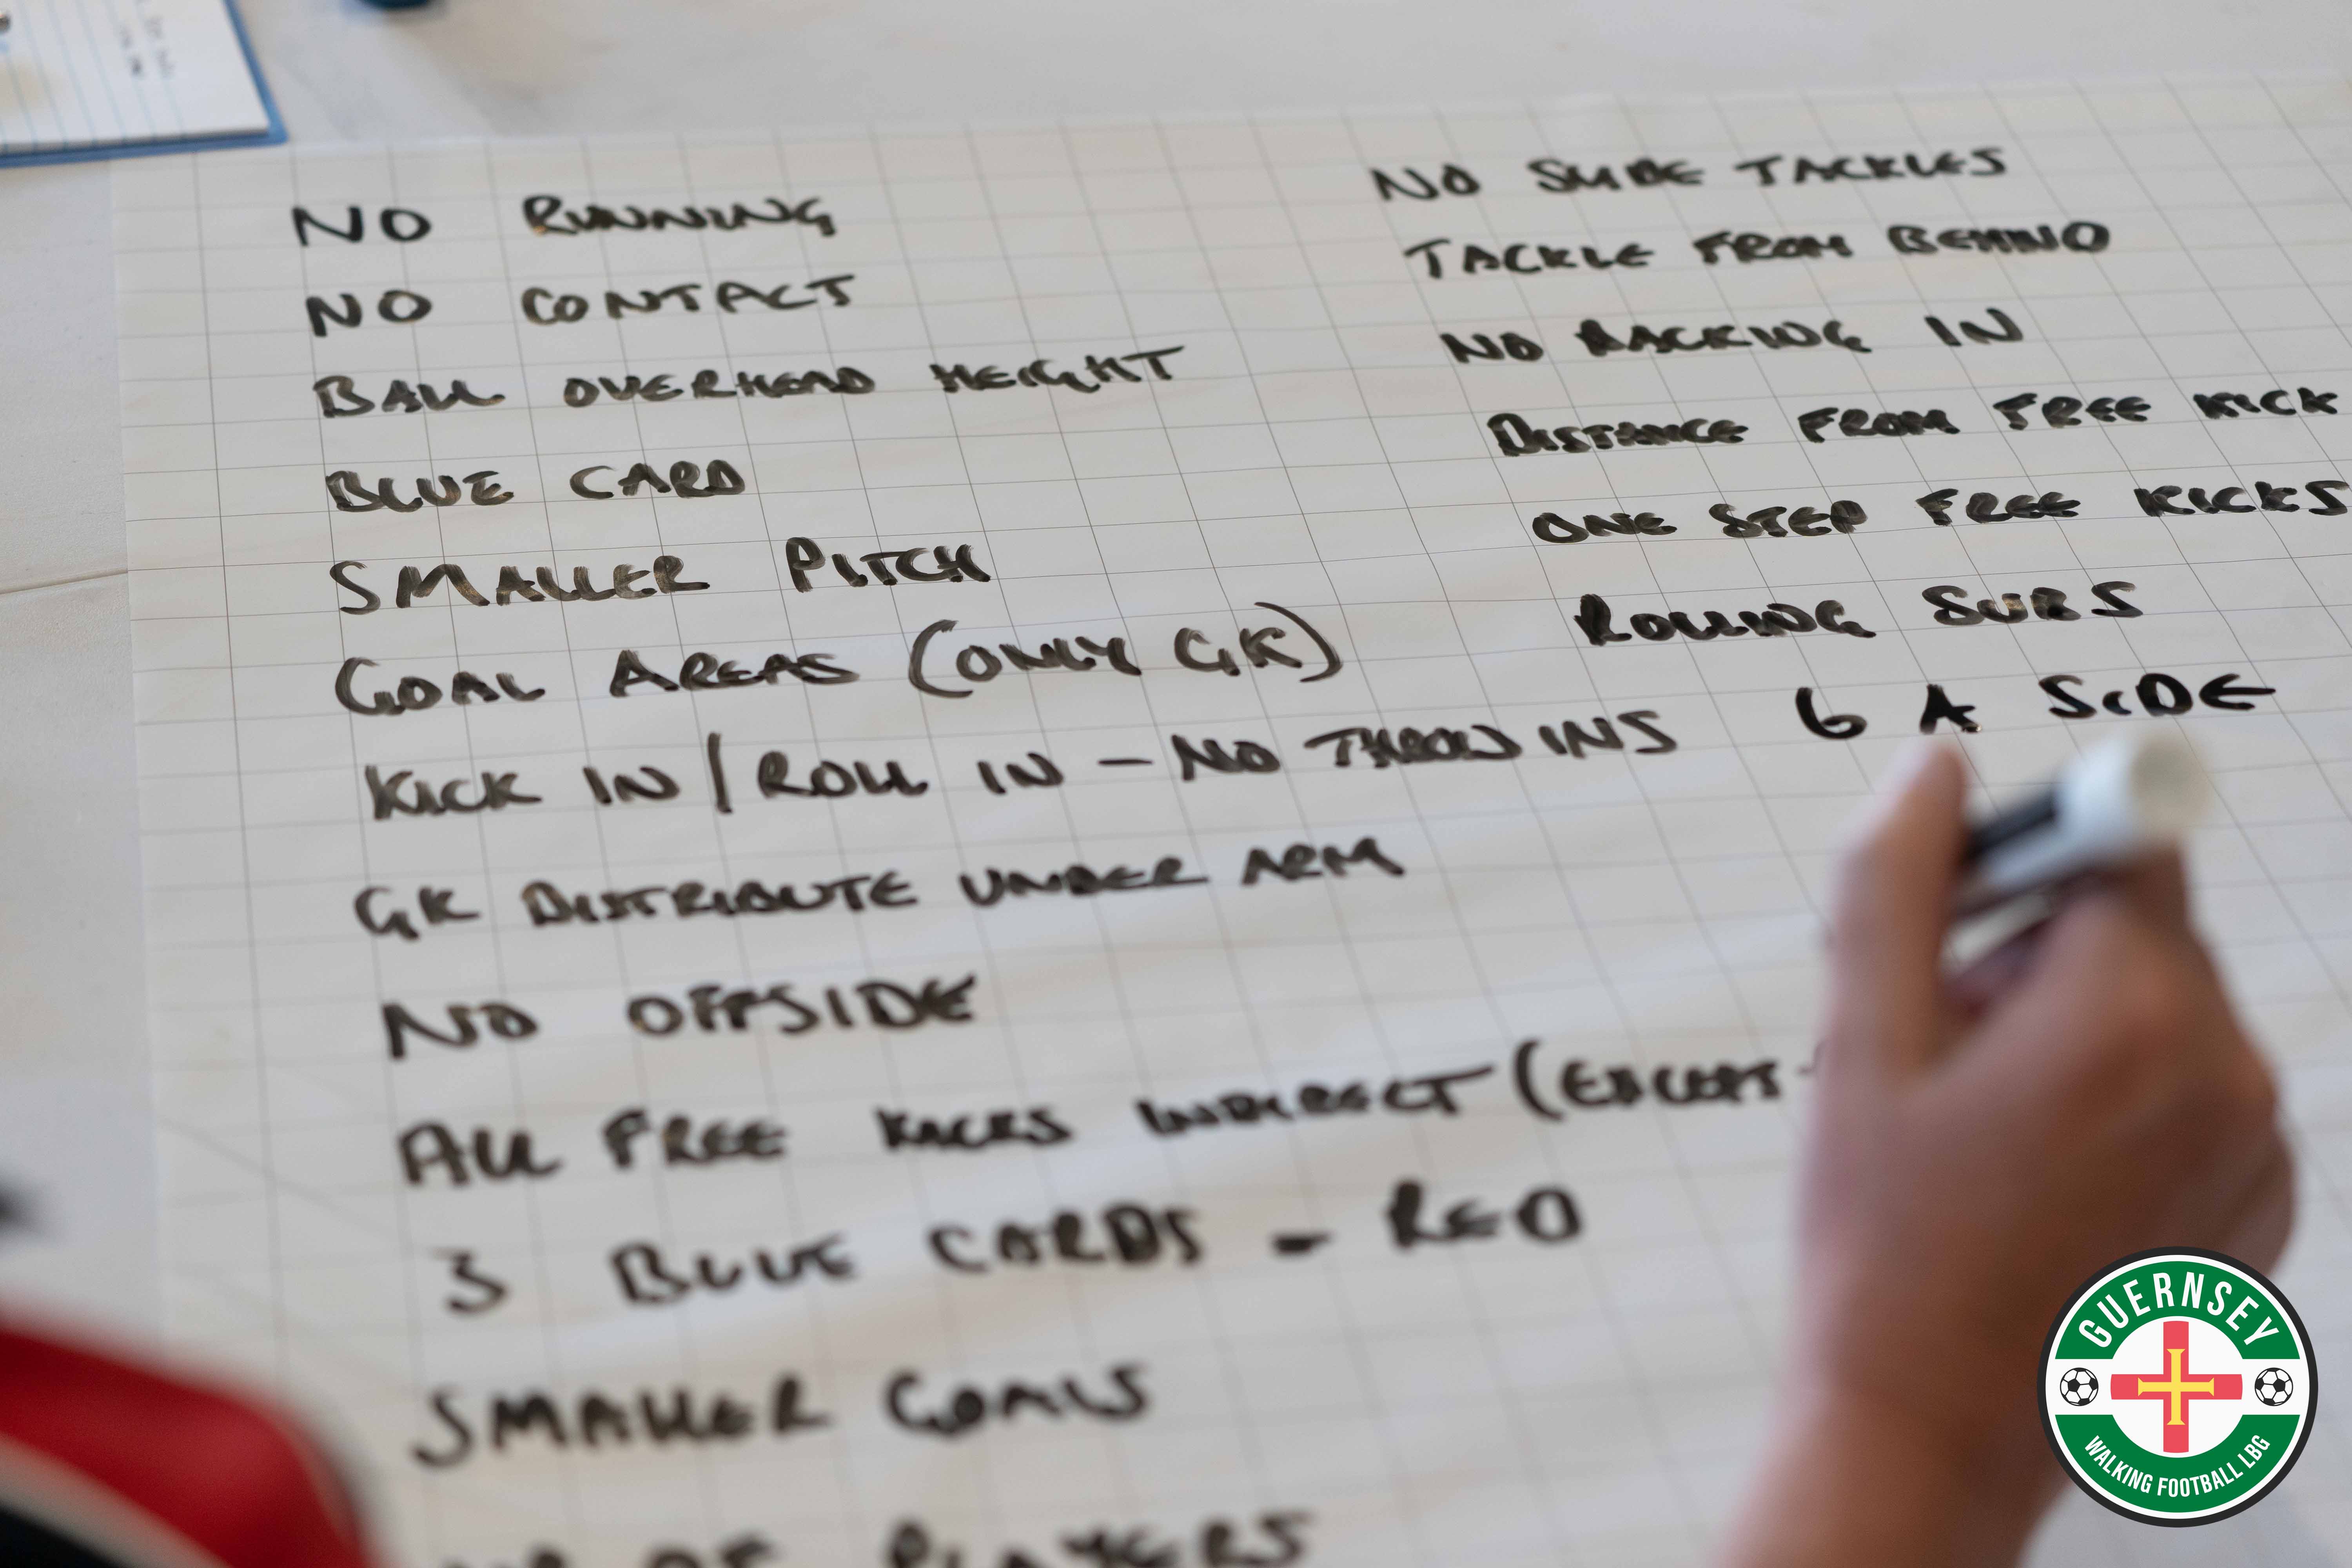 NO RUNNING
NO CONTACT
BALL OVERHEAD HEIGHT
BLUE CARD
SMALLER PITCH
GOAL AREAS (ONLY GK)
KICK IN / ROLL IN - NO THROW INS
GK DISTRIBUTE UNDER ARM
NO OFFSIDE
ALL FREE KICKS INDIRECT (EXCEPT
3 BLUE CARDS - RED
SMALLER GOALS
OF PLAYERS
NO SLIDE TACKLES
TACKLE FROM BEHIND
NO BACKING IN
DISTANCE FROM FREE KICK
ONE STEP FREE KICKS
ROLLING SUBS
6 A SIDE
GUERNSEY
WALKING FOOTBALL LBG